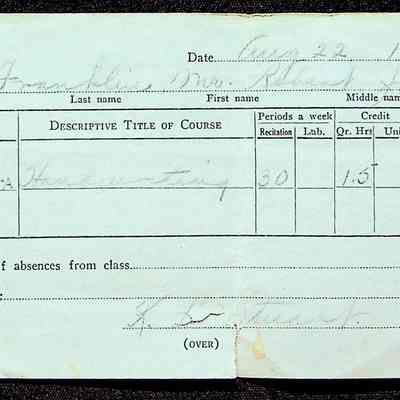 Date Aug 22 1
Franklin Mr. Robert
Last name First name Middle nam
DESCRIPTIVE TITLE OF COURSE Periods a week Credit
Recitation Lab. Qr. Hrs Uni
A Handwriting 30 1.5
f absences from class
K. Stuart
(OVER)